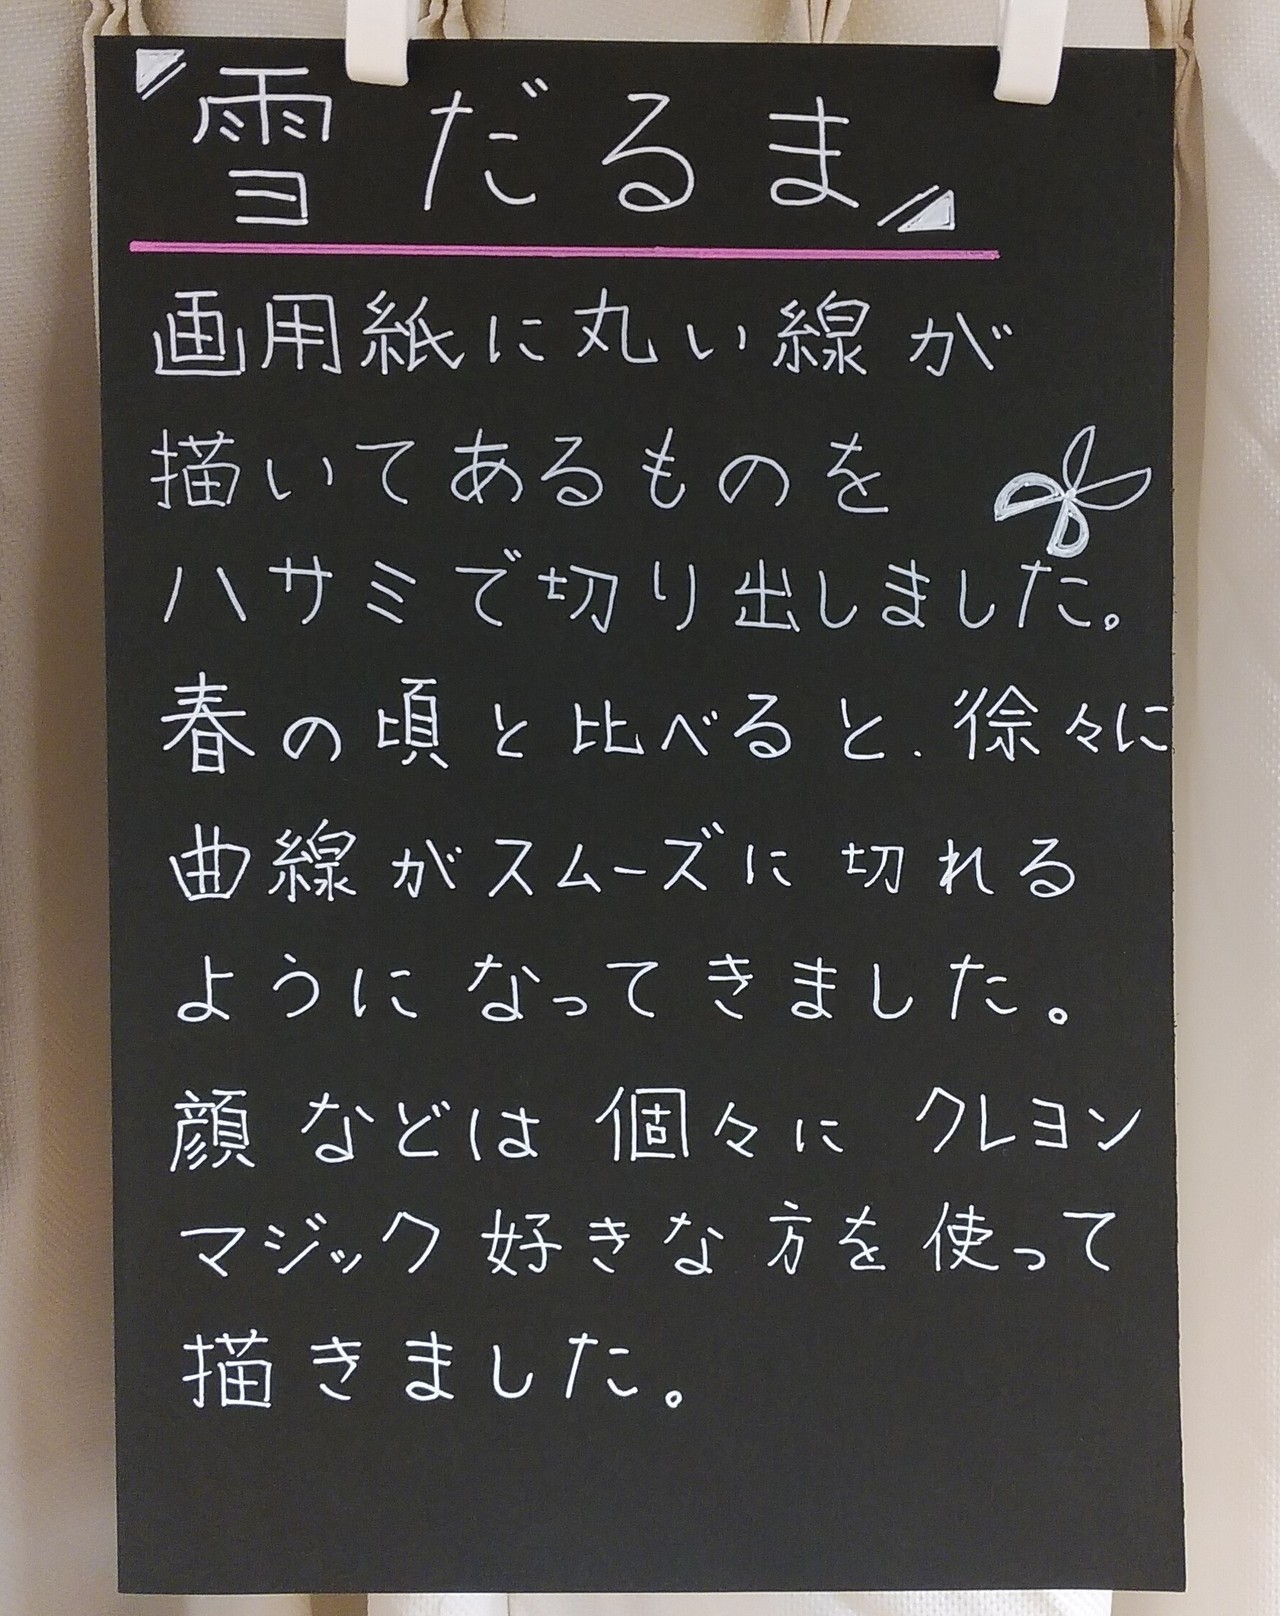 雪だるま
画用紙に丸い線が
描いてあるものを
ハサミで切り出しました。
春の頃と比べると、徐々に
曲線がスムーズに切れる
ようになってきました。
顔などは個々にクレヨン
マジック好きな方を使って
描きました。